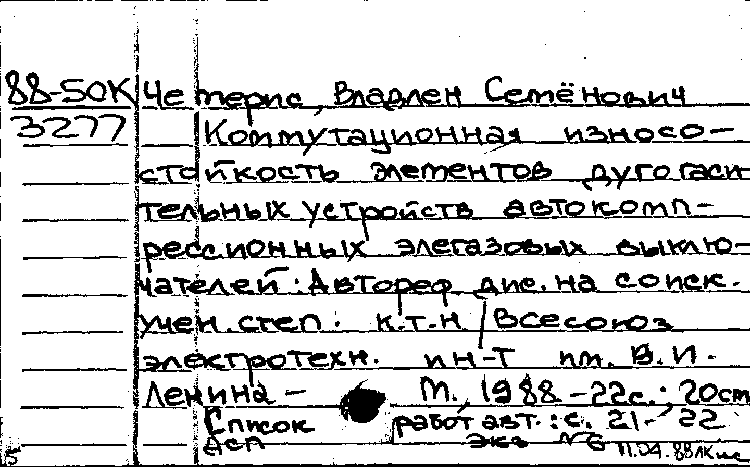 88-50К Четерис, Владлен Семёнович
3277 Коммутационная износо-
стойкость элементов дугогаси
тельных устройств автокомп-
рессионных элегазовых выклю-
чателей: Автореф дис. на соиск.
учен. степ. к.т.н / Всесоюз
электротехн. ин-т им. В.И.
Ленина - М., 1988 - 22с.; 20см
Список работ авт.: с. 21-22
Экз
11.04.88